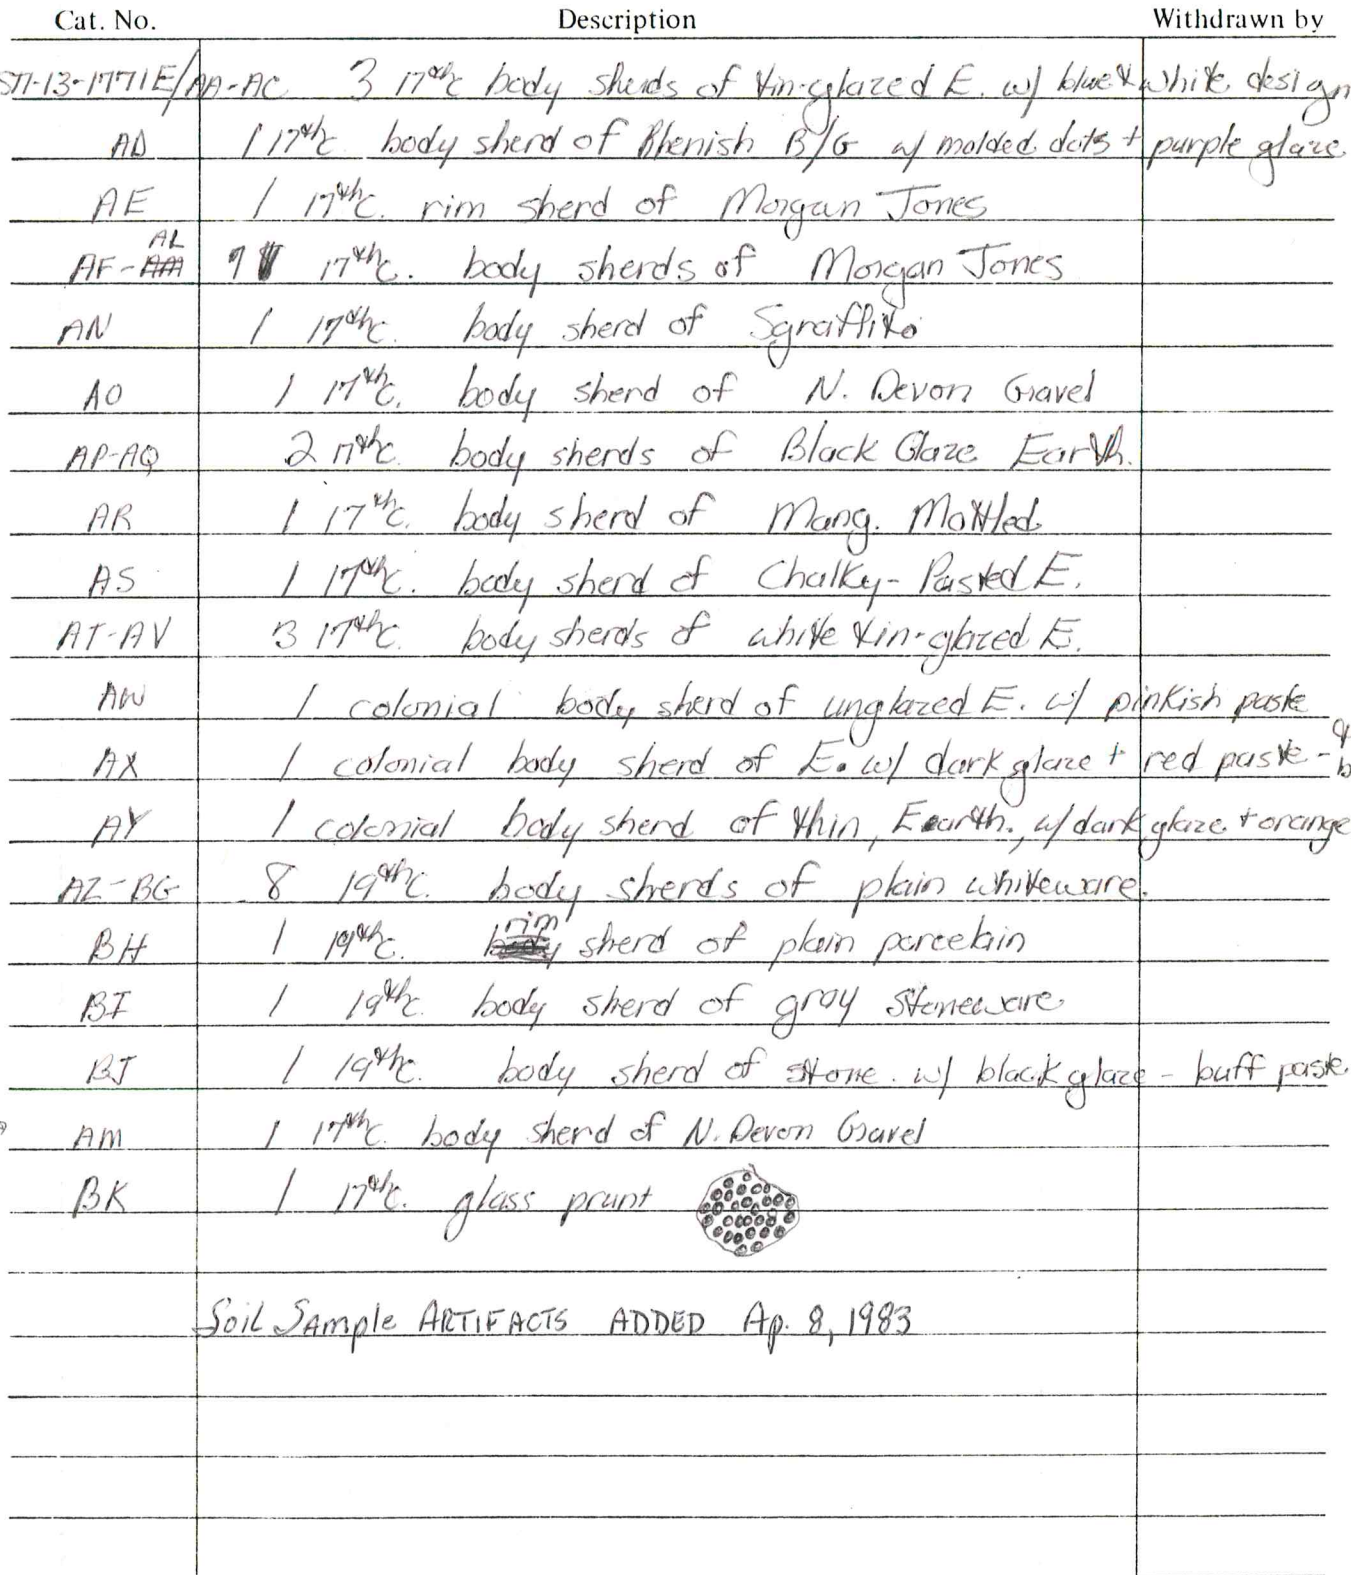 Cat. No. Description Withdrawn by
ST1-13-1771E/AA-AC 3 17thc body sherds of tin-glazed E. w/ blue + white design
AD 1 17thc. body sherd of Rhenish B/G w/ molded dots + purple glaze
AE 1 17thc. rim sherd of Morgan Jones
AL
AF-AM 7 17thc. body sherds of Morgan Jones
AN 1 17thc. body sherd of Sgraffito
AO 1 17thc. body sherd of N. Devon Gravel
AP-AQ 2 17thc. body sherds of Black Glaze Earth.
AR 1 17thc. body sherd of Mang. Mottled
AS 1 17thc. body sherd of Chalky-Pasted E.
AT-AV 3 17thc. body sherds of white tin-glazed E.
AW 1 colonial body sherd of unglazed E. w/ pinkish paste
AX 1 colonial body sherd of E. w/ dark glaze + red paste -
AY 1 colonial body sherd of thin, Earth., w/ dark glaze + orange
AZ-BG 8 19thc. body sherds of plain whiteware.
rim
BH 1 19thc. body sherd of plain porcelain
BI 1 19thc. body sherd of gray stoneware
BJ 1 19thc. body sherd of stone. w/ black glaze - buff paste
AM 1 17thc. body sherd of N. Devon Gravel
BK 1 17thc. glass prunt
Soil Sample ARTIFACTS ADDED Ap. 8, 1983